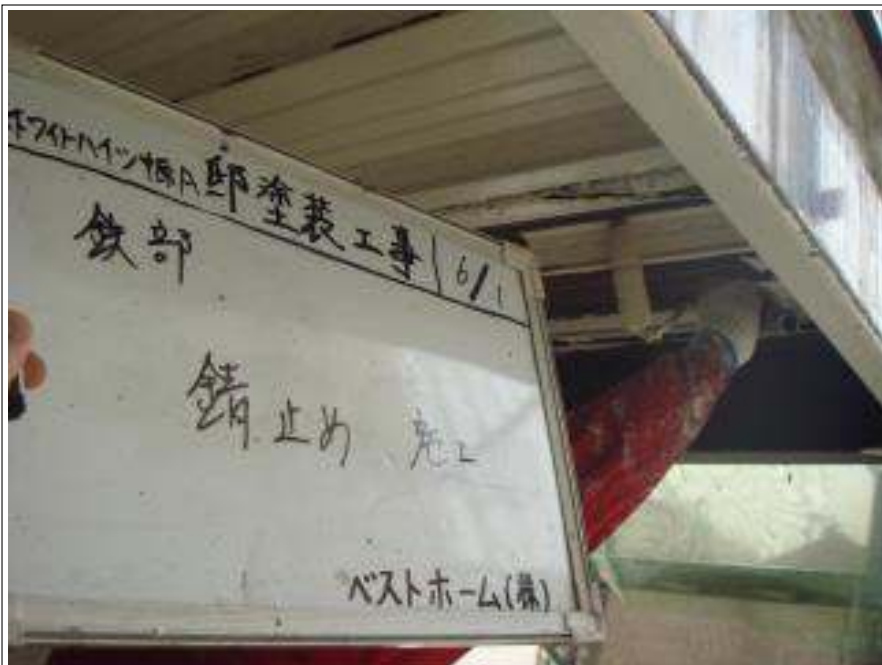 ホワイトハイツ塚A邸塗装工事 6/1
鉄部
錆止め 施工
ベストホーム(株)